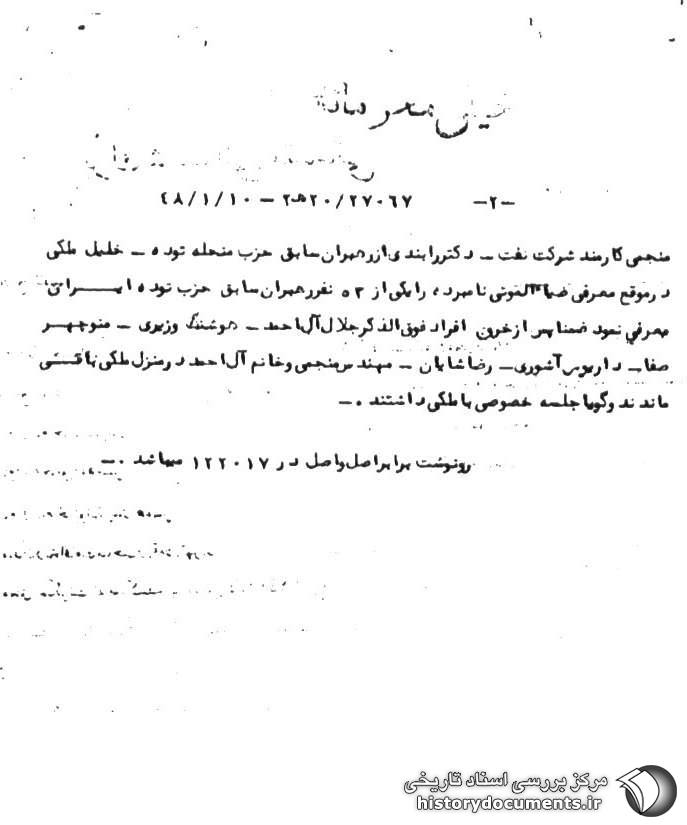 خیلی محرمانه
-۲- ۲۰/۲۷۰۶۷ﻫ۲ - ۴۸/۱/۱۰
منجمی کارمند شرکت نفت - دکتر رابندی از رهبران سابق حزب منحله توده - خلیل ملکی
در موقع معرفی ضیاء الموتی نامبرده را یکی از ۵۳ نفر رهبران سابق حزب توده ایران
معرفی نمود ضمنا پس از خروج افراد فوق الذکر جلال آل احمد - هوشنگ وزیری - منوچهر
صفا - داریوش آشوری - رضا شایان - مهندس منجمی و خانم آل احمد در منزل ملکی باقی
ماندند و گویا جلسه خصوصی با ملکی داشتند .-
رونوشت برابر اصل و اصل در ۱۲۲۰۱۷ میباشد .-
مرکز بررسی اسناد تاریخی
historydocuments.ir